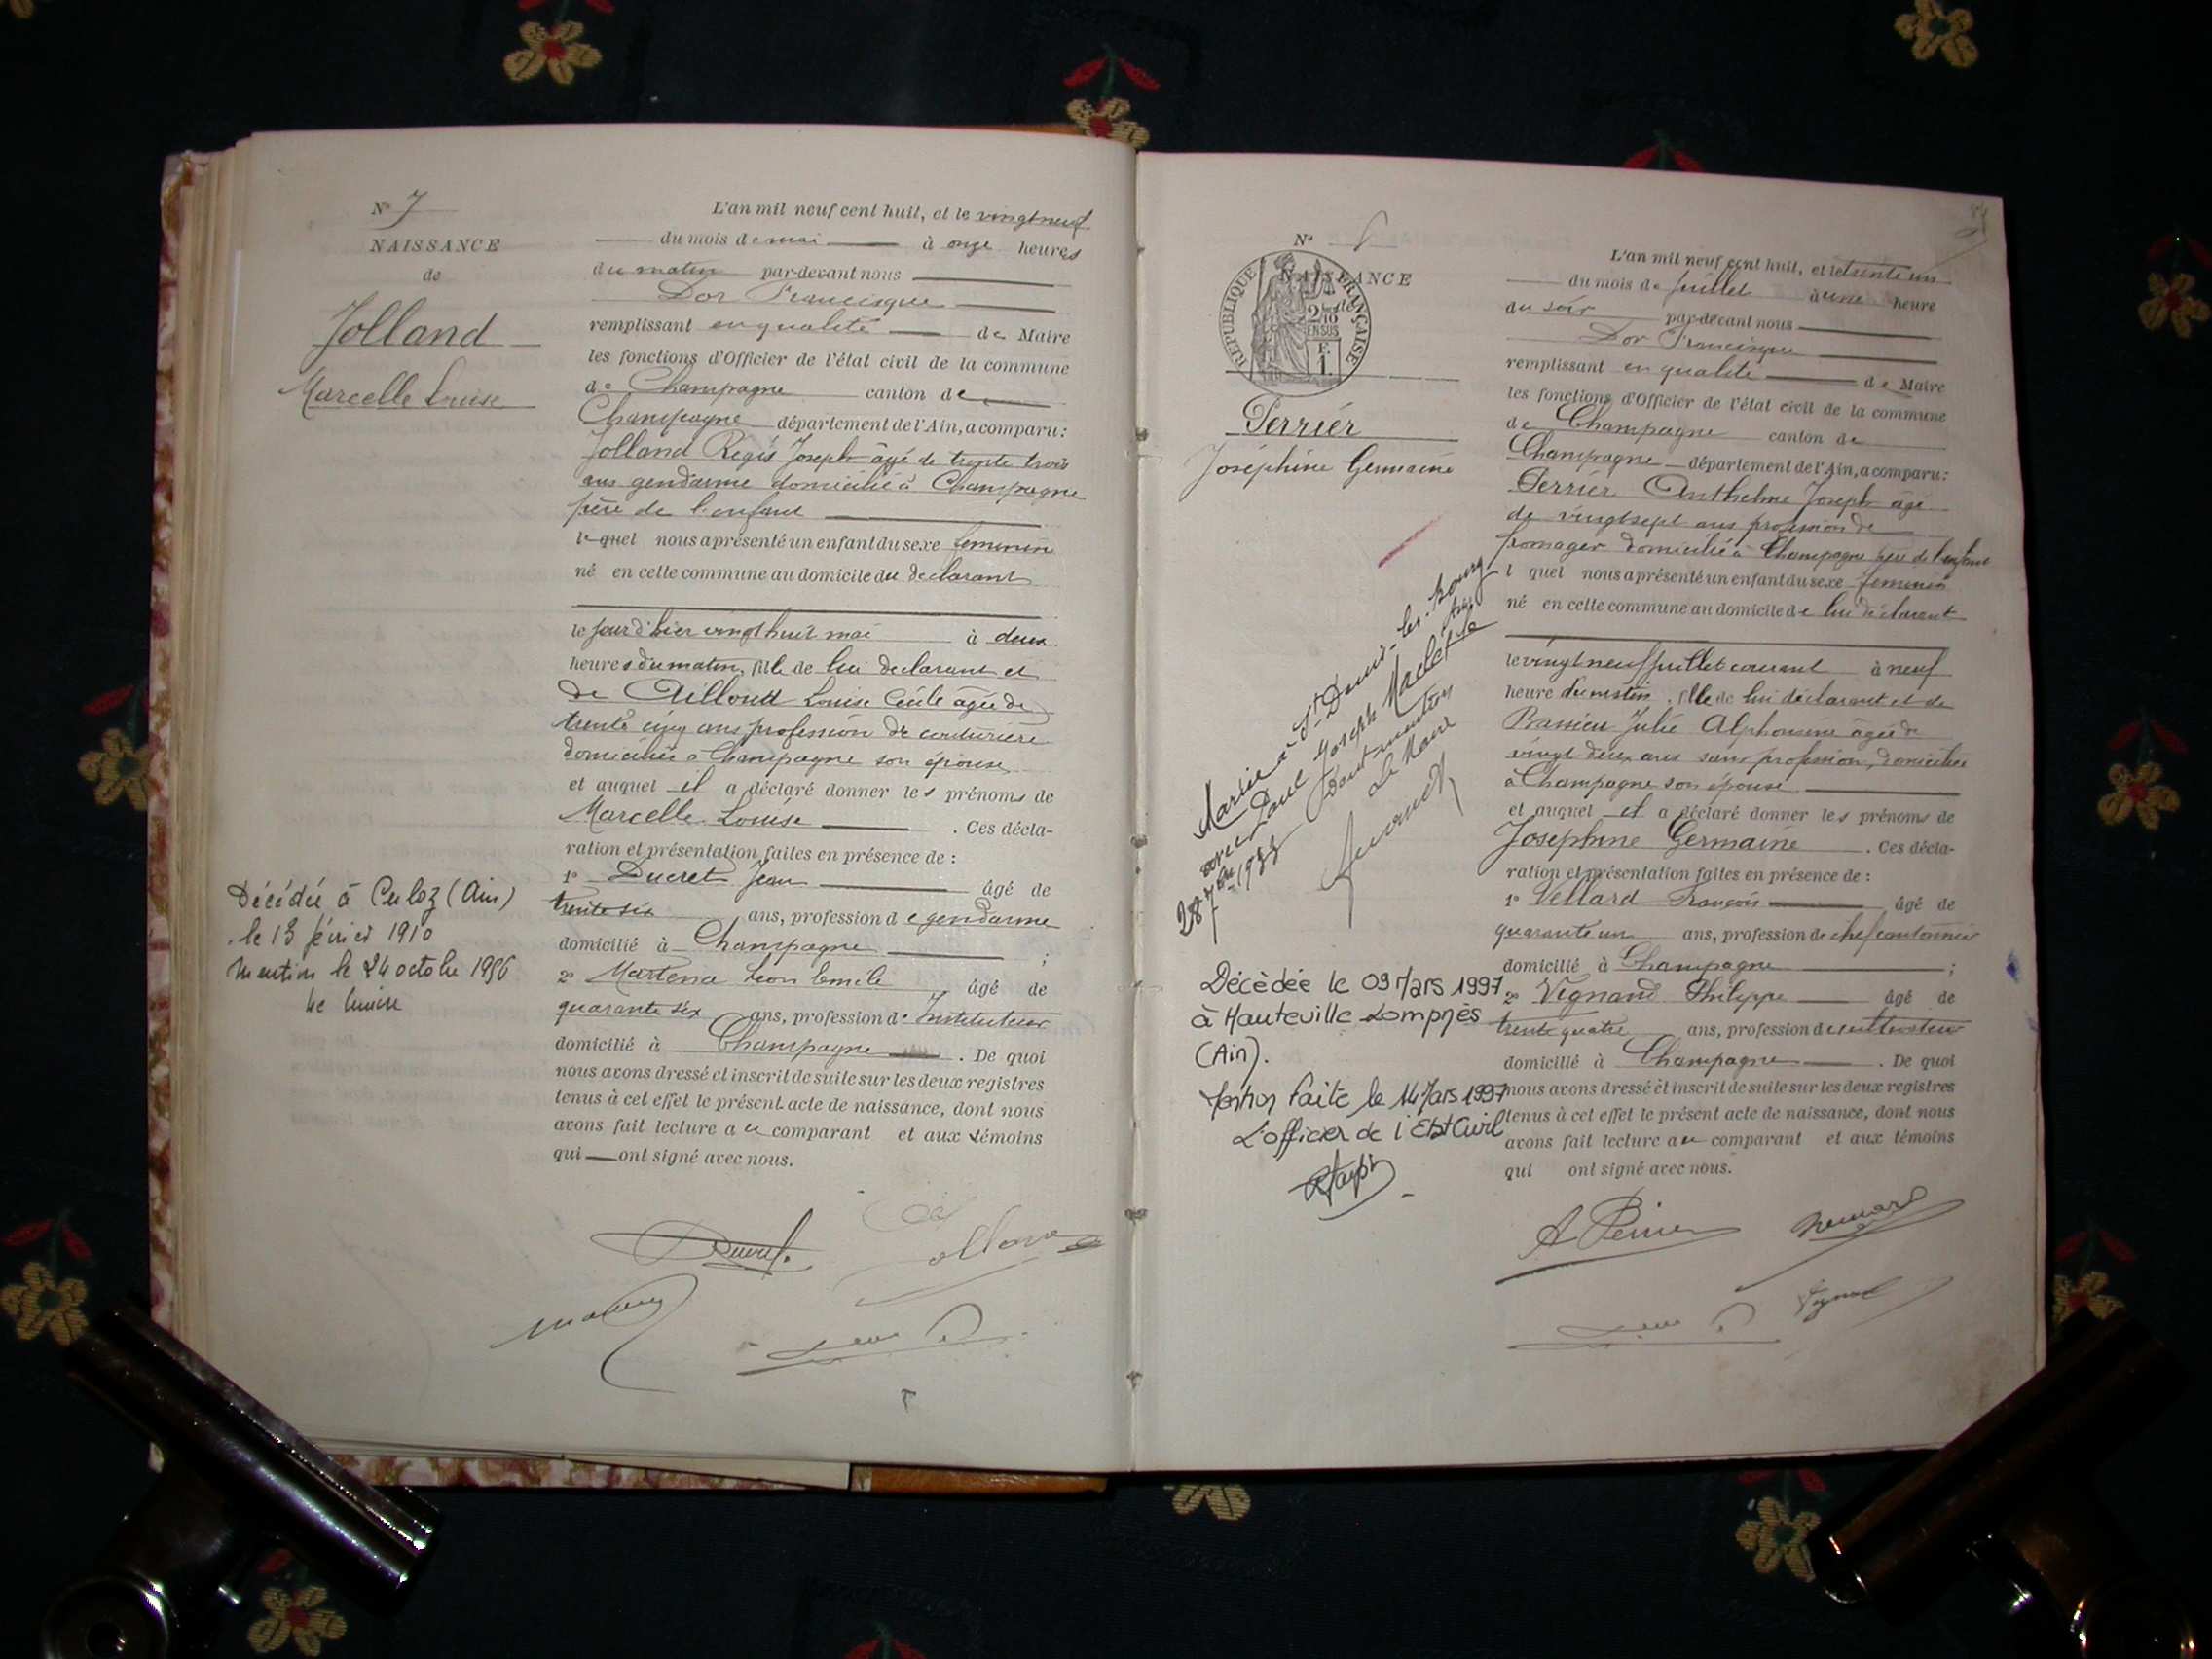 N° 7
NAISSANCE
de
Jolland
Marcelle Louise
Décédée à Culoz (Ain)
le 13 février 1910
Mention le 24 octobre 1956
L'an mil neuf cent huit, et le vingt neuf
du mois de mai à onze heures
du matin par-devant nous
Dor Francisque
remplissant en qualité de Maire
les fonctions d'Officier de l'état civil de la commune
de Champagne canton de
Champagne département de l'Ain, a comparu:
Jolland Régis Joseph âgé de trente trois
ans gendarme domicilié à Champagne
père de l'enfant
lequel nous a présenté un enfant du sexe feminin
né en cette commune au domicile du declarant
le jour d'hier vingt huit mai à deux
heures du matin, fille de lui declarant et
de Cécile âgée de
trente cinq ans profession de couturière
domiciliée à Champagne son épouse
et auquel il a déclaré donner les prénoms de
Marcelle Louise . Ces décla-
ration et présentation faites en présence de :
1° Ducret Jean âgé de
trente six ans, profession de gendarme
domicilié à Champagne ;
2° Martena Léon Emile âgé de
quarante six ans, profession d'Instituteur
domicilié à Champagne . De quoi
nous avons dressé et inscrit de suite sur les deux registres
tenus à cet effet le présent acte de naissance, dont nous
avons fait lecture au comparant et aux témoins
qui ont signé avec nous.
Ducret
Jolland
N° 8
NAISSANCE
de
REPUBLIQUE FRANÇAISE
2/10
EN SUS
F.
1.
Perrier
Joséphine Germaine
Mariée à St Denis-les-Bourg
avec Paul Joseph
28 7bre 1933 Dont mention
Le Maire
Décédée le 09 Mars 1997
à Hauteville-Lompnès
(Ain).
Mention faite le 14 Mars 1997
L'officier de l'Etat Civil
L'an mil neuf cent huit, et le trente un
du mois de juillet à une heure
du soir par-devant nous
Dor Francisque
remplissant en qualité de Maire
les fonctions d'Officier de l'état civil de la commune
de Champagne canton de
Champagne département de l'Ain, a comparu:
Perrier Anthelme Joseph âgé
de vingt sept ans profession de
fromager domicilié à Champagne père de l'enfant
l quel nous a présenté un enfant du sexe feminin
né en cette commune au domicile de lui déclarant
le vingt neuf juillet courant à neuf
heure du matin, fille de lui déclarant et de
Julie Alphonsine âgée de
vingt deux ans sans profession, domiciliée
à Champagne son épouse
et auquel il a déclaré donner les prénoms de
Joséphine Germaine . Ces décla-
ration et présentation faites en présence de :
1° Vellard François âgé de
quarante un ans, profession de chef cantonnier
domicilié à Champagne ;
2° Vignand Philippe âgé de
trente quatre ans, profession de cultivateur
domicilié à Champagne . De quoi
nous avons dressé et inscrit de suite sur les deux registres
tenus à cet effet le présent acte de naissance, dont nous
avons fait lecture au comparant et aux témoins
qui ont signé avec nous.
A Perrier